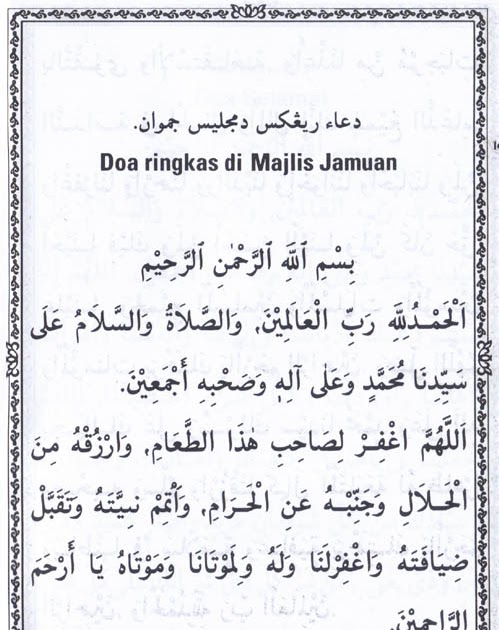 دعاء ريڠكس دمجليس جموان.
Doa ringkas di Majlis Jamuan
بِسْمِ ٱللَّهِ ٱلرَّحْمٰنِ ٱلرَّحِيْمِ
اَلْحَمْدُلِلَّهِ رَبِّ الْعَالَمِيْنَ, وَالصَّلَاةُ وَالسَّلَامُ عَلَى
سَيِّدِنَا مُحَمَّدٍ وَعَلَى آلِهِ وَصَحْبِهِ أَجْمَعِيْنَ.
اَللَّهُمَّ اغْفِرْ لصَاحِبِ هَذَا الطَّعَامِ, وَارْزُقْهُ مِنَ
الْحَلَالِ وَجَنِّبْهُ عَنِ الْحَرَامِ, وَأَتْمِمْ نِيَّتَهُ وَتَقَبَّلْ
ضِيَافَتَهُ وَاغْفِرْلَنَا وَلَهُ وَلِمَوْتَانَا وَمَوْتَاهُ يَا أَرْحَمَ
الرَّاحِمِيْنَ.